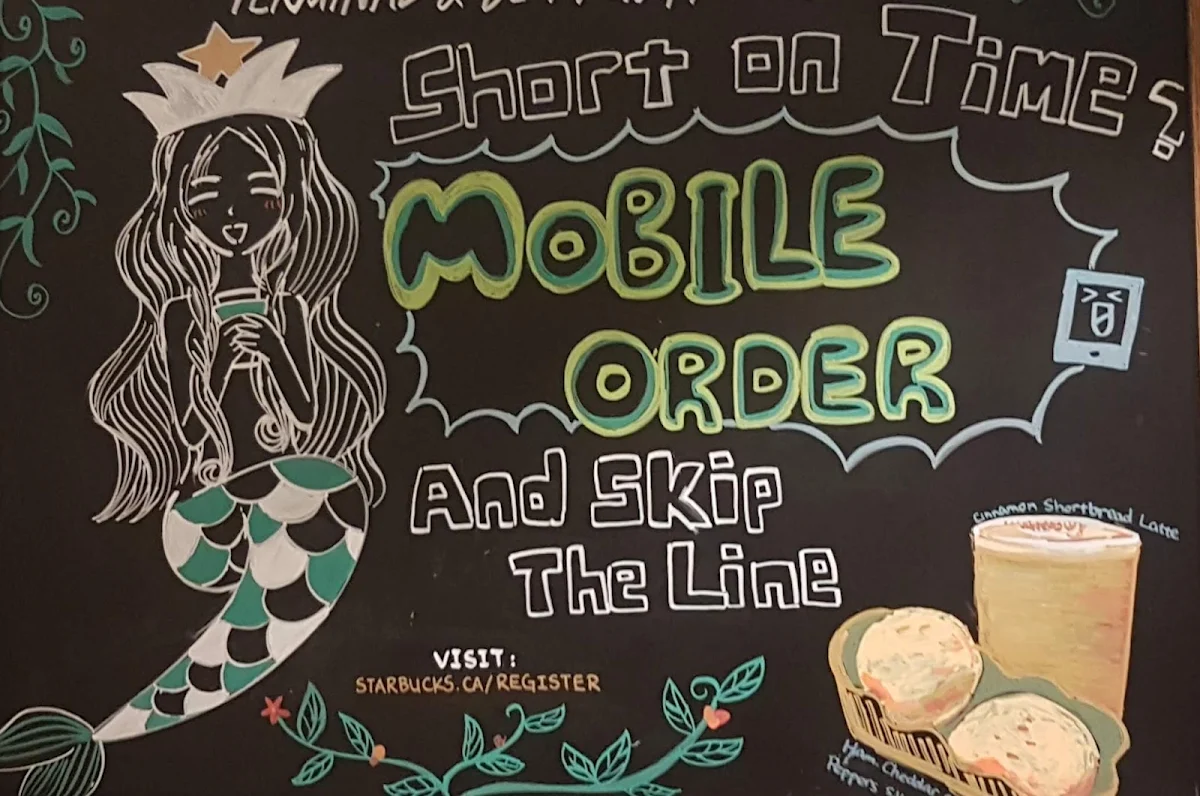 TERMINAL &
Short on Time?
MOBILE
ORDER
And Skip
The Line
VISIT:
STARBUCKS.CA/REGISTER
Cinnamon Shortbread Latte
Ham, Cheddar
Peppers